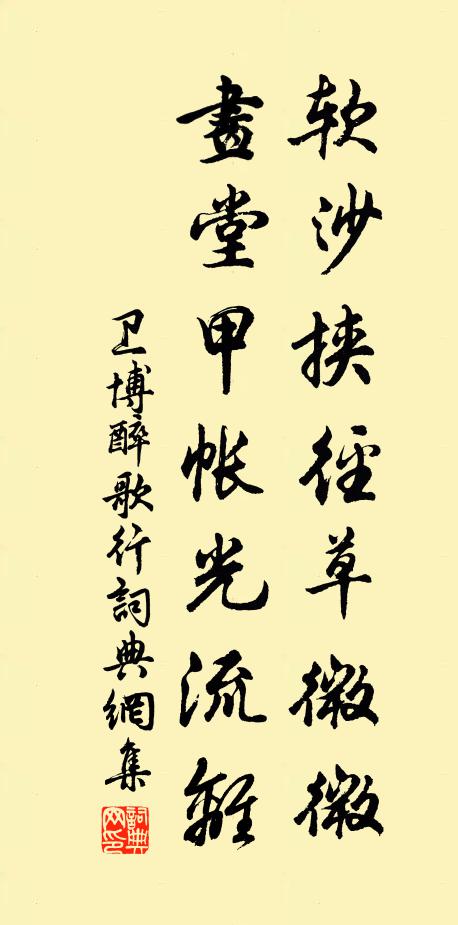 软沙挟徑草微微
畫堂甲帐光流離
卫博醉歌行詞典網集
詞典网印